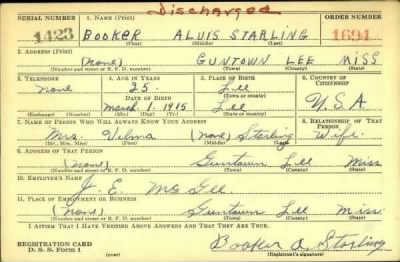 Discharged
SERIAL NUMBER 1. NAME (Print) ORDER NUMBER
1423 BOOKER ALVIS STARLING 1694
(First) (Middle) (Last)
2. ADDRESS (Print)
(None) GUNTOWN LEE MISS
(Number and street or R. F. D. number) (Town) (County) (State)
3. TELEPHONE 4. AGE IN YEARS 5. PLACE OF BIRTH 6. COUNTRY OF CITIZENSHIP
none 25 Lee
(Town or county)
DATE OF BIRTH
March 1, 1915 Lee U.S.A
(Exchange) (Number) (Mo.) (Day) (Yr.) (State or country)
7. NAME OF PERSON WHO WILL ALWAYS KNOW YOUR ADDRESS 8. RELATIONSHIP OF THAT PERSON
Mrs. Vilma (None) Starling Wife
(Mr., Mrs., Miss) (First) (Middle) (Last)
9. ADDRESS OF THAT PERSON
(None) Guntown Lee Miss
(Number and street or R. F. D. number) (Town) (County) (State)
10. EMPLOYER'S NAME
J. E. McGee
11. PLACE OF EMPLOYMENT OR BUSINESS
(None) Guntown Lee Miss
(Number and street or R. F. D. number) (Town) (County) (State)
I AFFIRM THAT I HAVE VERIFIED ABOVE ANSWERS AND THAT THEY ARE TRUE.
REGISTRATION CARD
D. S. S. Form 1 (over) Booker A Starling
(Registrant's signature)